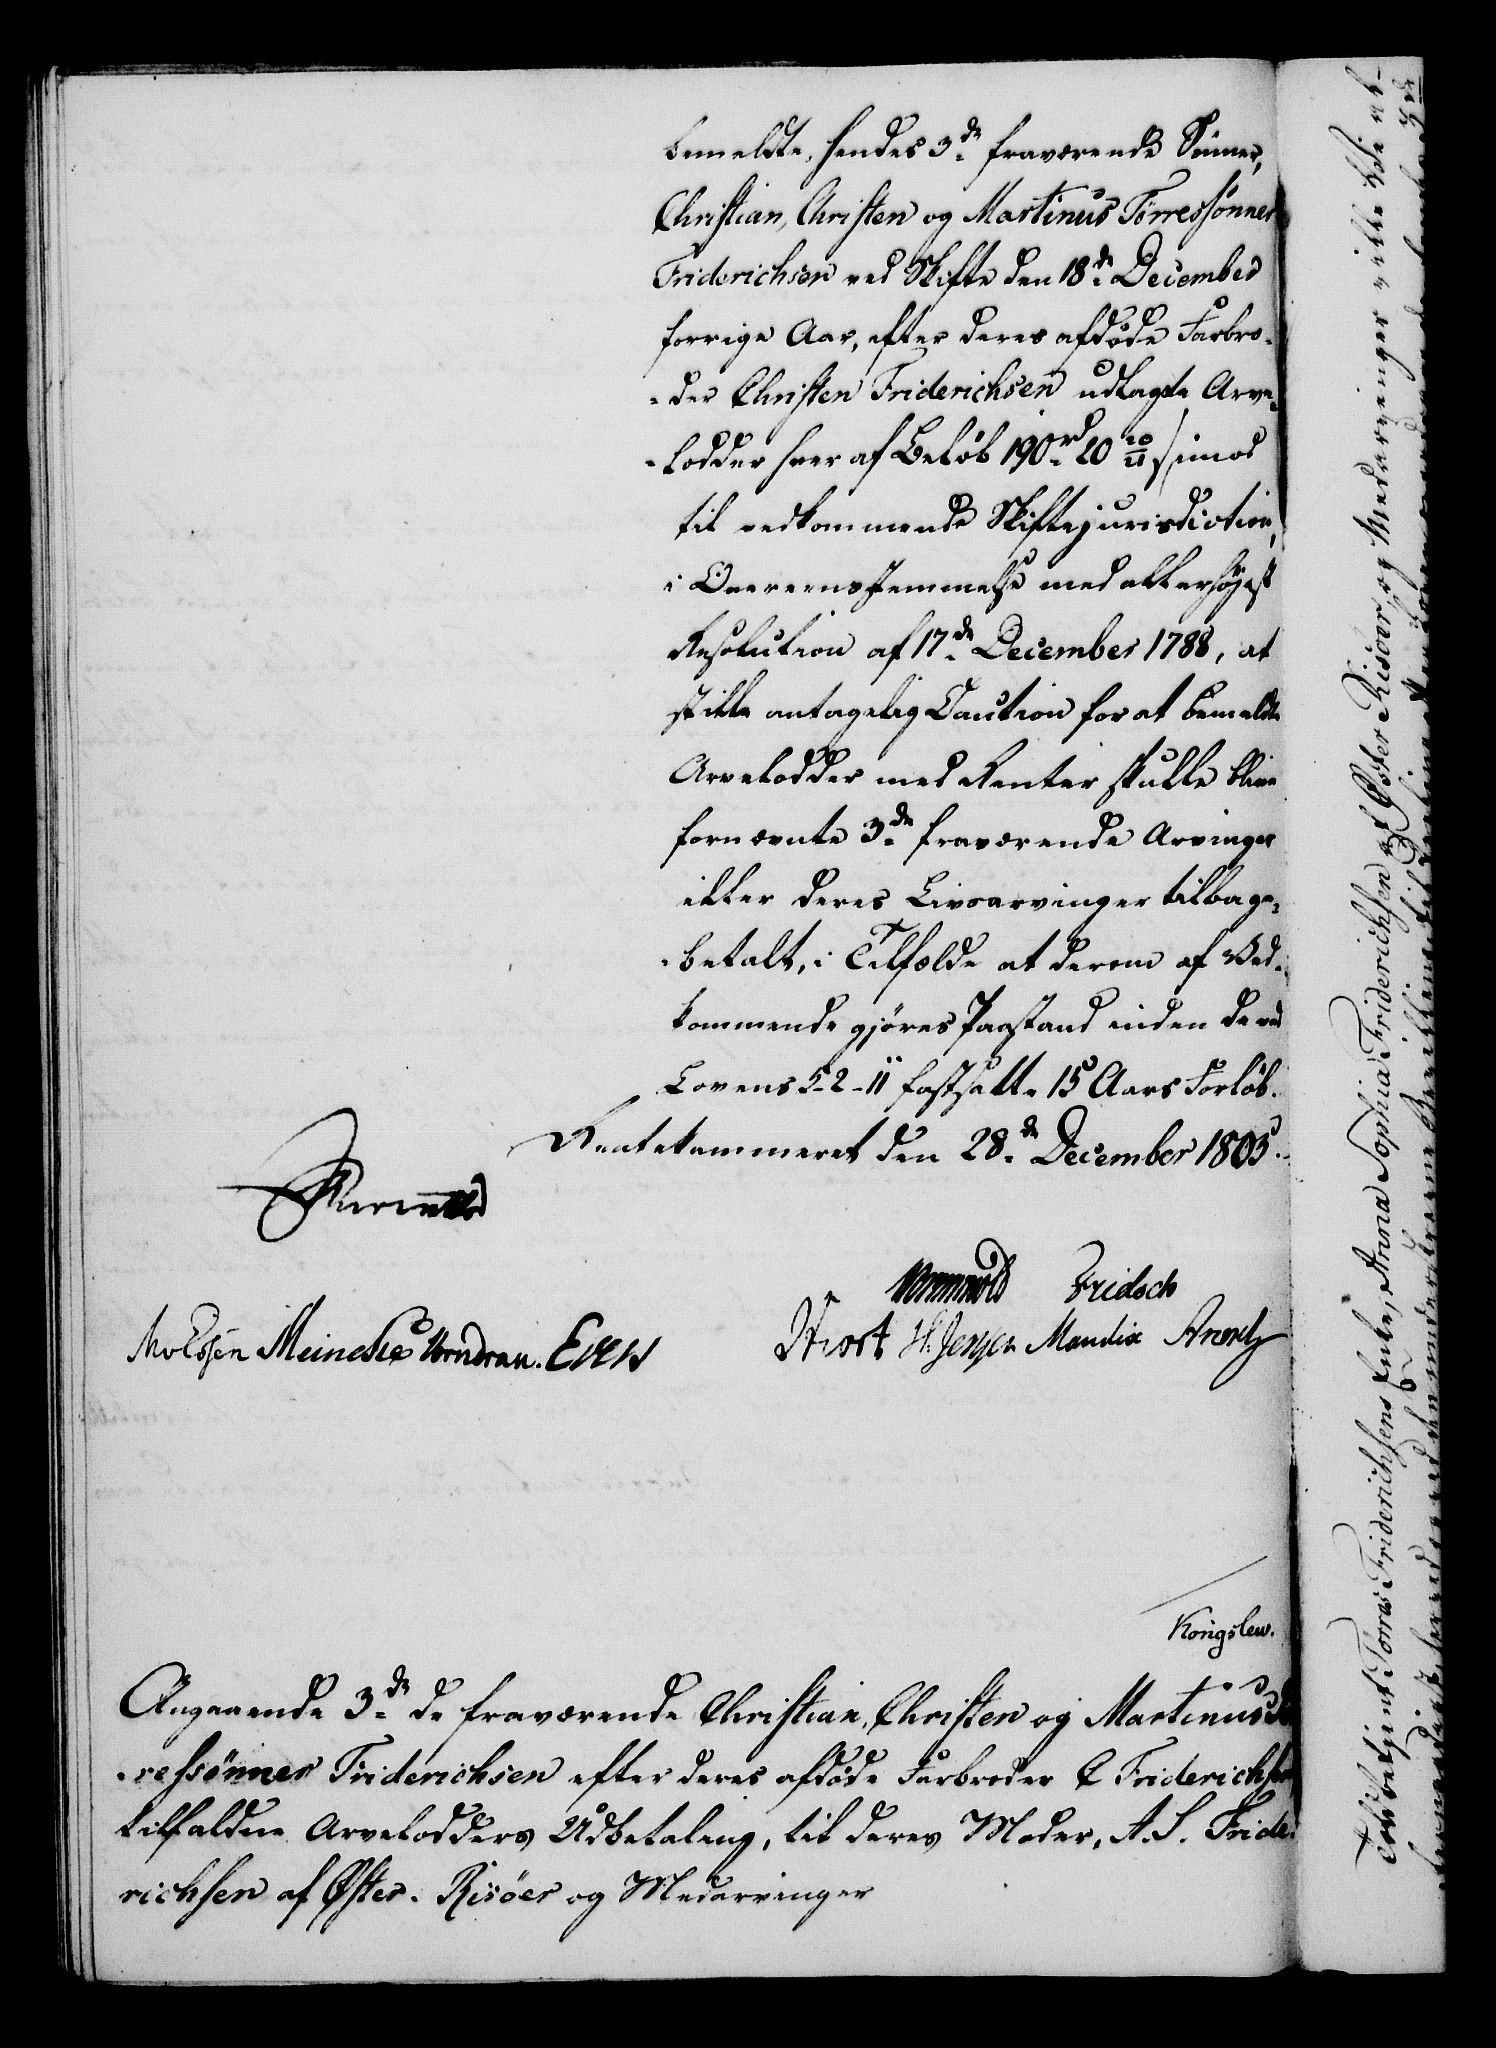 bemeldte, hendes 3de fraværende Sönner,
Christian, Christen og Martinus Torressönner
Friderichsen ved Skifte den 18de December
forrige Aar, efter deres afdöde Farbro-
-der Christen Friderichsen udlagte Arve-
-lodder hver af Belöb 190 rd 20 10/11 s imod
til vedkommende Skiftejurisdiction,
i Overeensstemmelse med allerhöjest
Resolution af 17de December 1788, at
stille antagelig Caution for at bemeldte
Arvelodder med Renter skulle blive
fornævnte 3de fraværende Arvinger
eller deres Livsarvinger tilbage-
-betalt, i Tilfælde at derom af Ved-
kommende gjöres Paastand inden de ved
Lovens 5-2-11 fastsatte 15 Aars Forlöb.
Rentekammeret den 28de December 1803.
Fridsch
Meincke Wormdran.
Wiort H. Jensen Mandix
Kongslew.
Angaaende 3de de fraværende Christian, Christen og Martinus
-ressönner Friderichsen efter deres afdöde Farbroder C Friderichsen
tilfaldne Arvelodders Udbetaling, til deres Moder, A. S. Fride-
richsen af Öster-Risöer og Medarvinger
Torres Friderichsens Enke, Anna Sophia Friderichsen af Öster Risöer og Medarvinger ville blive